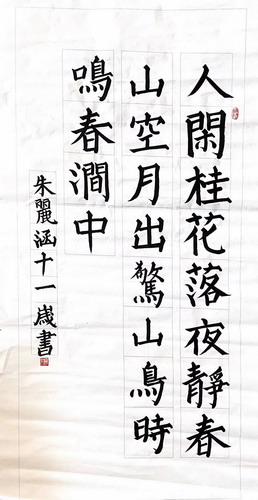 人閑桂花落夜靜春
山空月出驚山鳥時
鳴春澗中
朱麗涵十一歲書